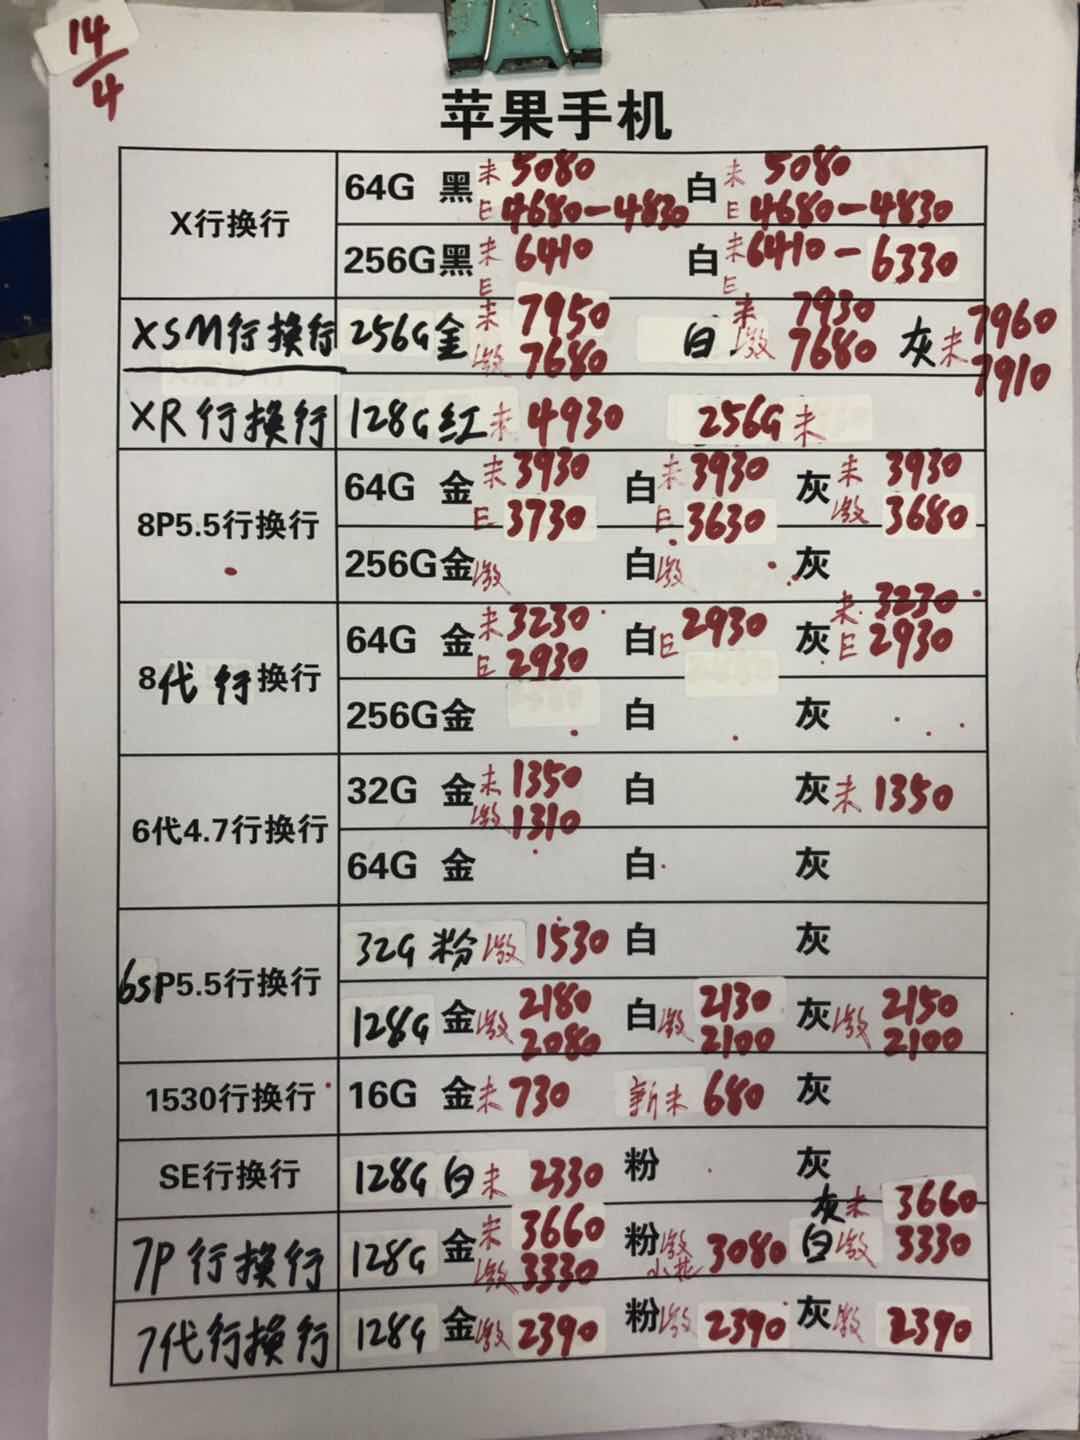 14/4
苹果手机
X行换行 64G 黑 未 5080 白 未 5080
E 4680-4830 E 4680-4830
256G 黑 未 6410 白 未 6410-6330
E E
XSM行换行 256G 金 未 7950 白 未 7930 灰 未 7960
激 7680 激 7680 7910
XR行换行 128G 红 未 4930 256G 未
8P5.5行换行 64G 金 未 3930 白 未 3930 灰 未 3930
E 3730 E 3630 激 3680
256G 金 激 白 激 灰
8代行换行 64G 金 未 3230 白 E 2930 灰 未 3230
E 2930 E 2930
256G 金 白 灰
6代4.7行换行 32G 金 未 1350 白 灰 未 1350
激 1310
64G 金 白 灰
6SP5.5行换行 32G 粉 激 1530 白 灰
128G 金 激 2180 白 激 2130 灰 激 2150
2080 2100 2100
1530行换行 16G 金 未 730 新未 680 灰
SE行换行 128G 白 未 2330 粉 灰
7P行换行 128G 金 未 3660 粉 激 3080 灰 未 3660
激 3330 小花 白 激 3330
7代行换行 128G 金 激 2390 粉 激 2390 灰 激 2390